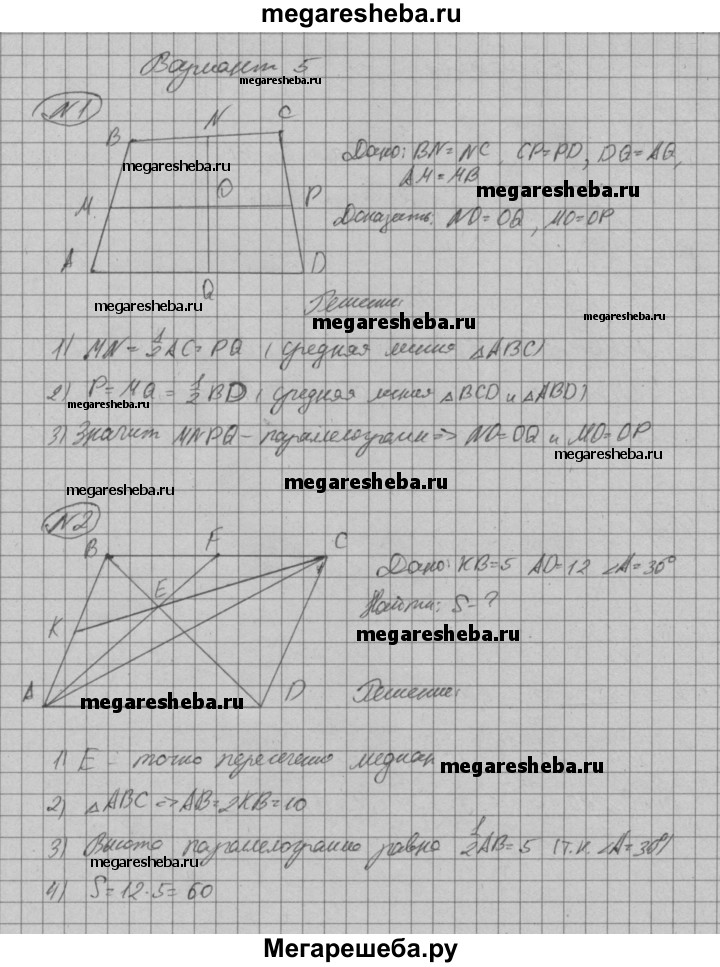 megaresheba.ru
Вариант 5
megaresheba.ru
№1
B N C
megaresheba.ru
Дано: BN=NC, CP=PD, DQ=AQ,
AM=MB
megaresheba.ru
M O P
Доказать: NO=OQ, MO=OP
A Q D
Решение:
megaresheba.ru
megaresheba.ru
1) MN=1/2 AC=PQ (средняя линия △ABC)
2) P=MQ=1/2 BD (средняя линия △BCD и △ABD)
megaresheba.ru
3) Значит MNPQ – параллелограмм => NO=OQ и MO=OP
megaresheba.ru
megaresheba.ru
megaresheba.ru
№2
B F C
Дано: KB=5 AD=12 ∠A=30°
E
Найти: S-?
K
megaresheba.ru
A D
Решение:
megaresheba.ru
1) E – точка пересечения медиан
megaresheba.ru
2) △ABC => AB=2KB=10
3) Высота параллелограмма равна 1/2 AB=5 (т.к. ∠A=30°)
megaresheba.ru
4) S=12·5=60
Мегарешеба.ру